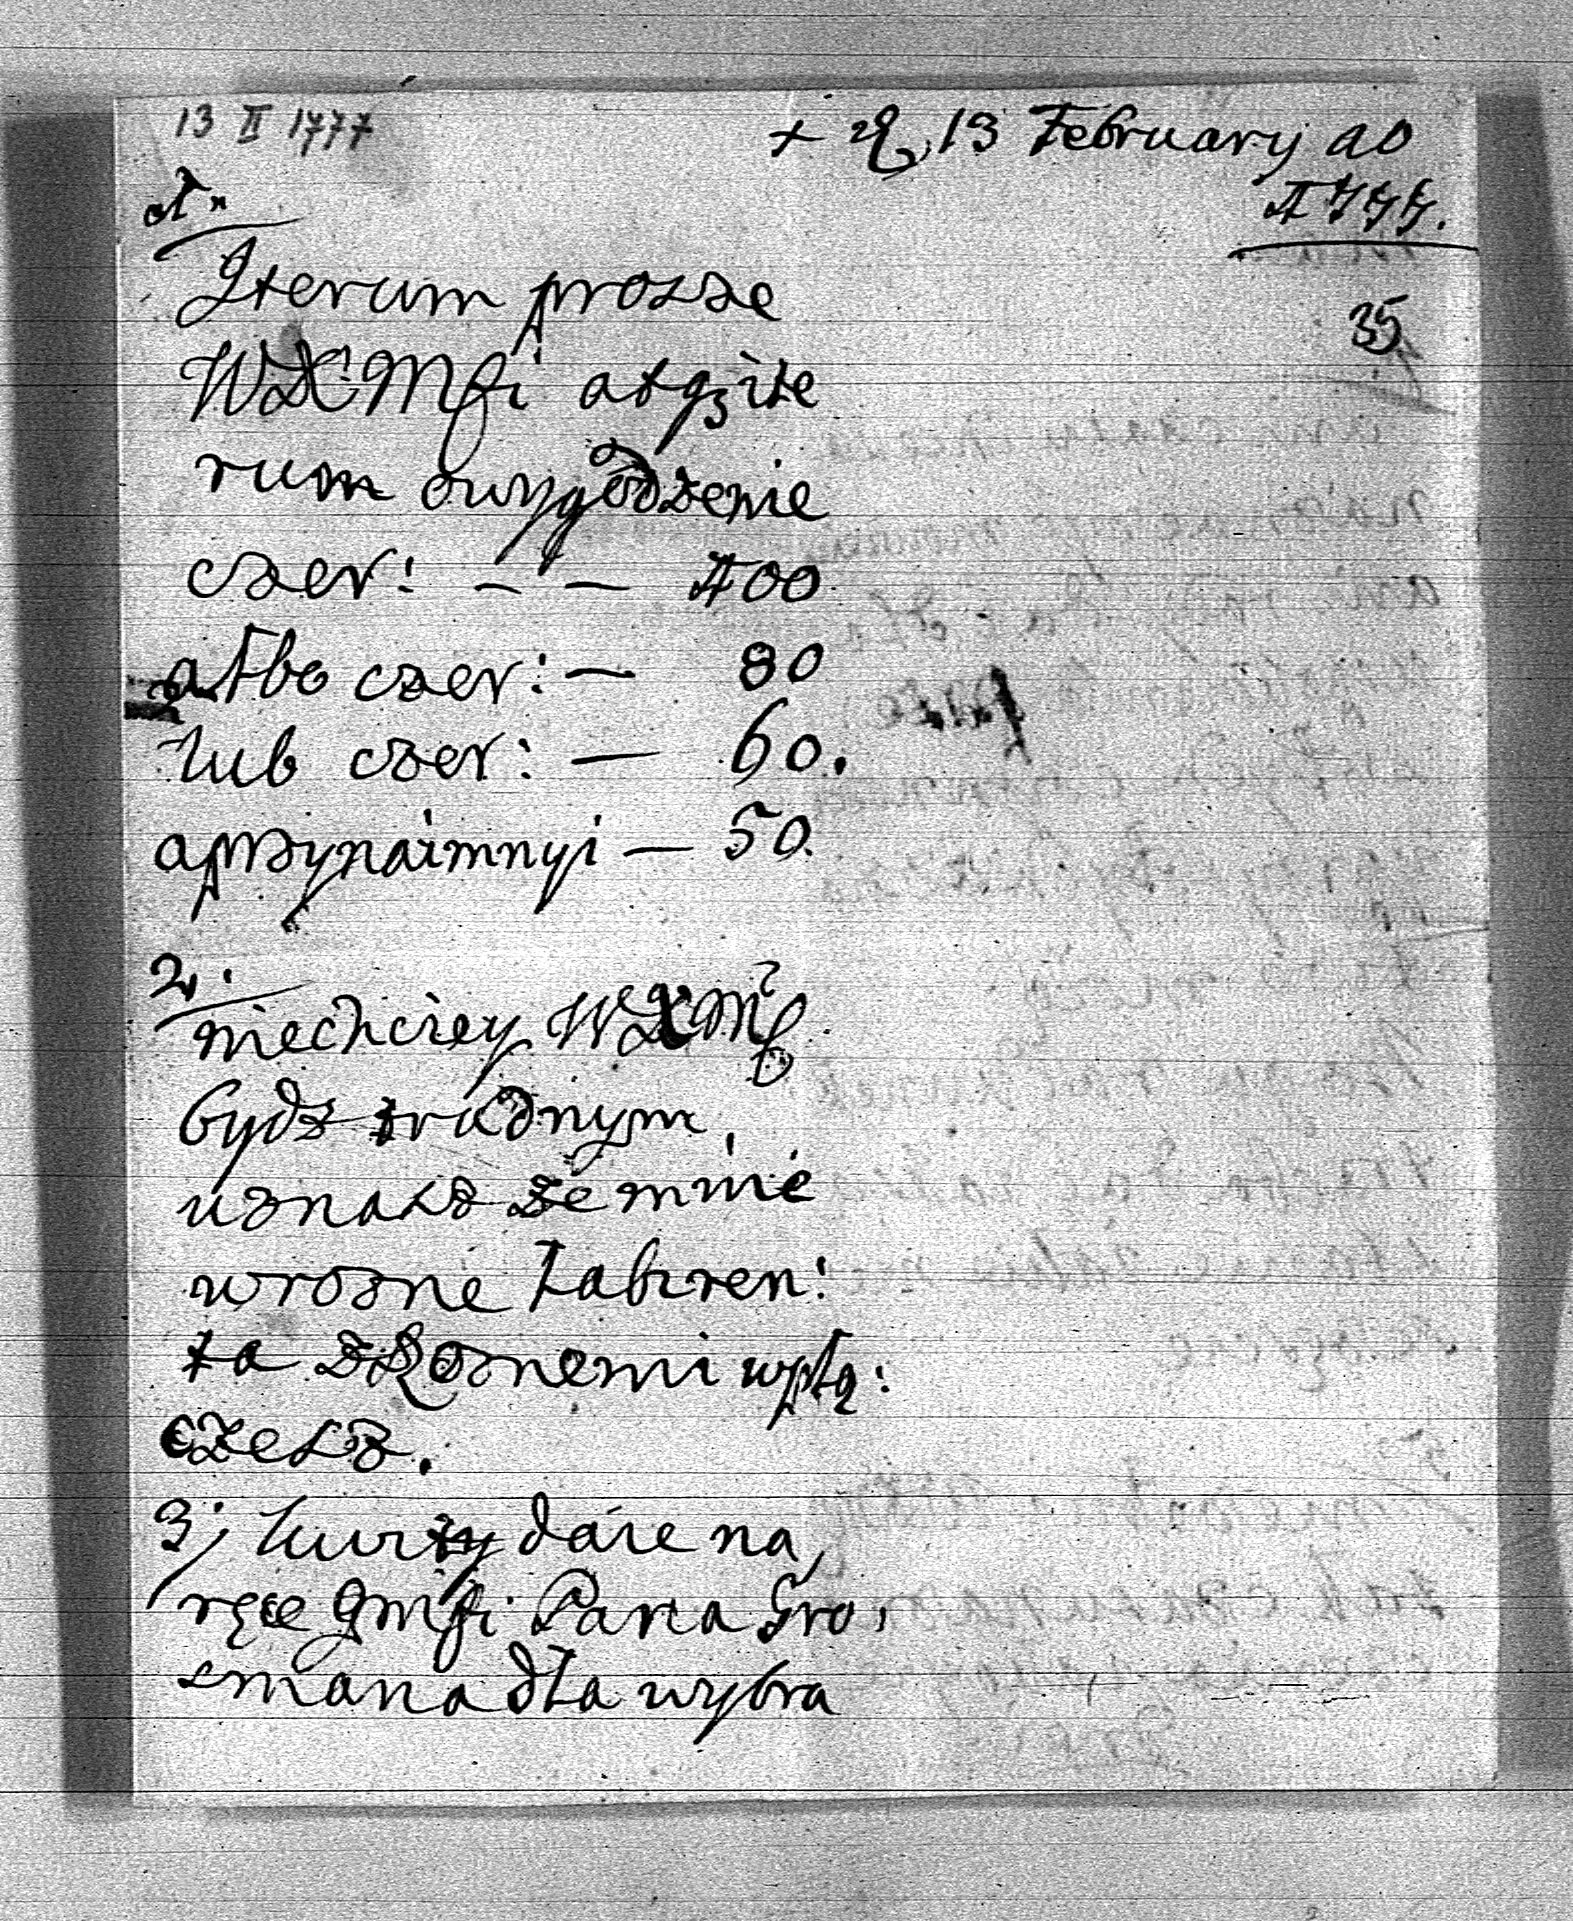 13 II 1777
+ 13 February ao
1777.
35
1.
Iterum prosze
WXMści atqż ite
rum owygodzenie
czer: — — 100
albo czer: — 80
lub czer: — 60.
aprzynaimnyi — 50.
2.
niechciey WXMć
bydz zradnym,
uznasz że mnie
wrozne Labiren:
ta wplą:
czesz.
3; daie na
ręce Jmści Pana Gro,
smana dla wybra